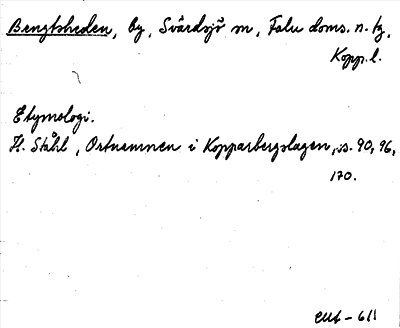 Bengtsheden, by, Svärdsjö sn, Falu doms. n. tg,
Kopp. l.
Etymologi.
H. Ståhl, Ortnamnen i Kopparbergslagen, ss. 90, 96,
170.